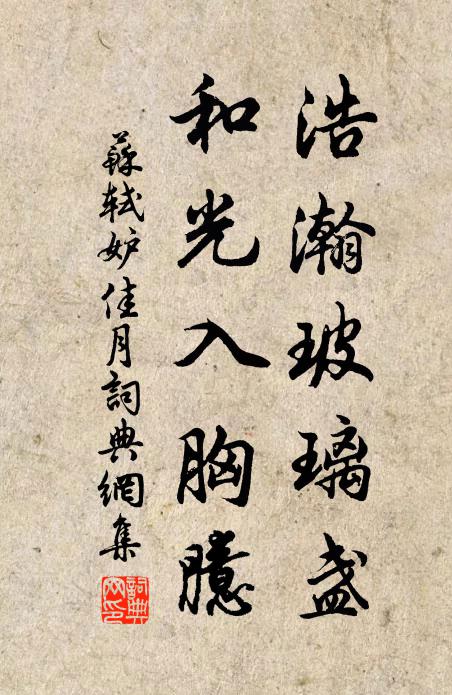 浩瀚玻璃盞
和光入胸臆
蘇軾妒佳月詞典網集
詞典網印